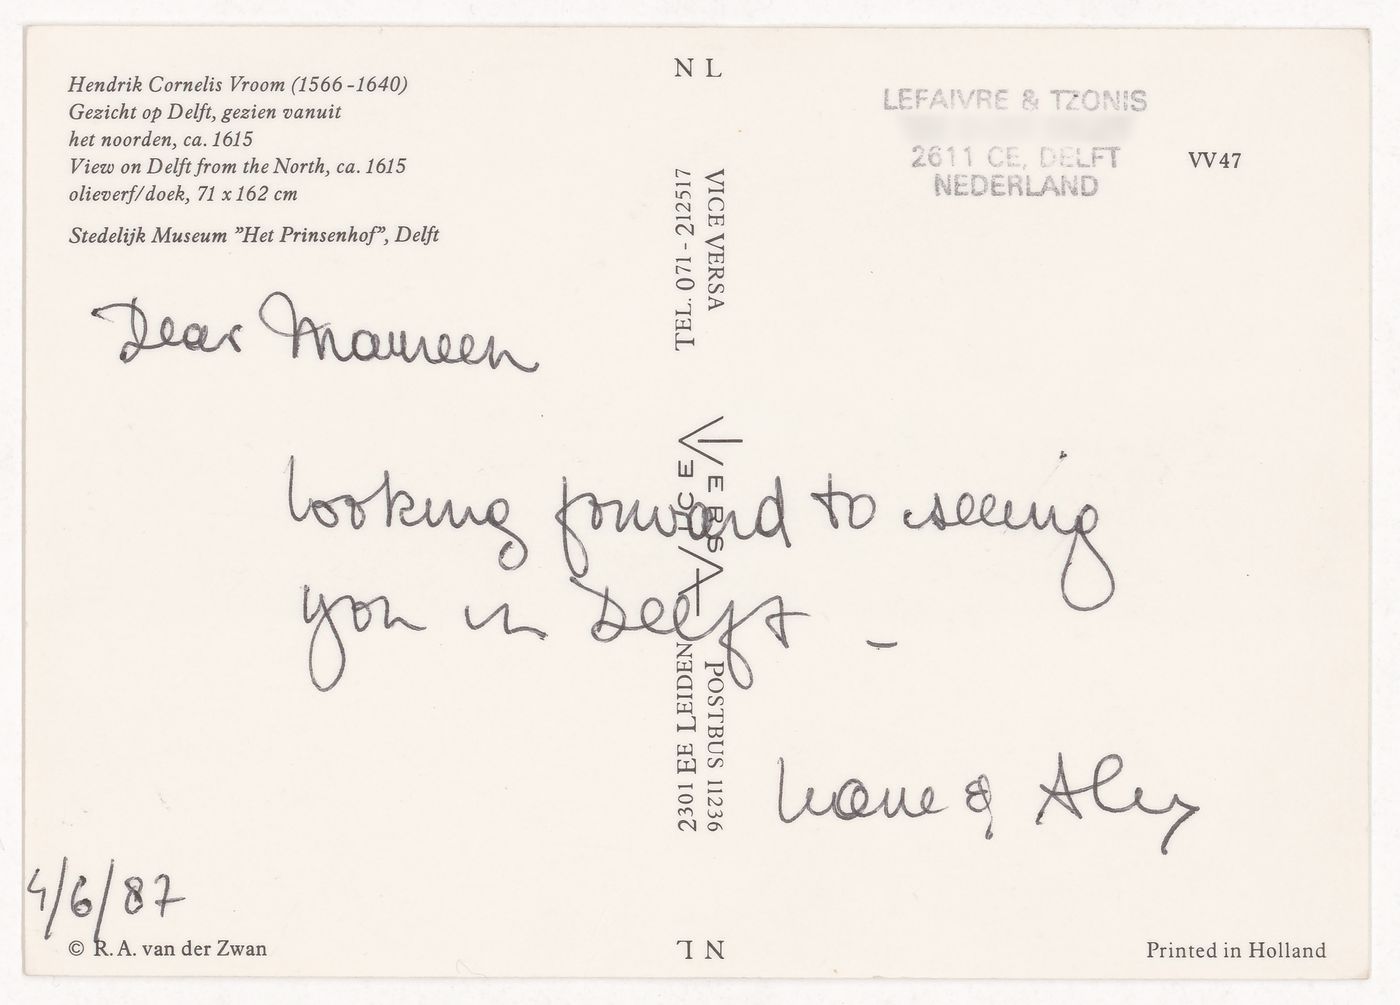 Hendrik Cornelis Vroom (1566-1640)
Gezicht op Delft, gezien vanuit
het noorden, ca. 1615
View on Delft from the North, ca. 1615
olieverf/doek, 71 x 162 cm
Stedelijk Museum "Het Prinsenhof", Delft
NL
LEFAIVRE & TZONIS
2611 CE, DELFT
NEDERLAND
VV47
VICE VERSA
TEL. 071 - 212517
VICE
VERSA
POSTBUS 11236
2301 EE LEIDEN
Dear Maureen
looking forward to seeing
you in Delft -
Liane & Alex
4/6/87
© R. A. van der Zwan
NL
Printed in Holland